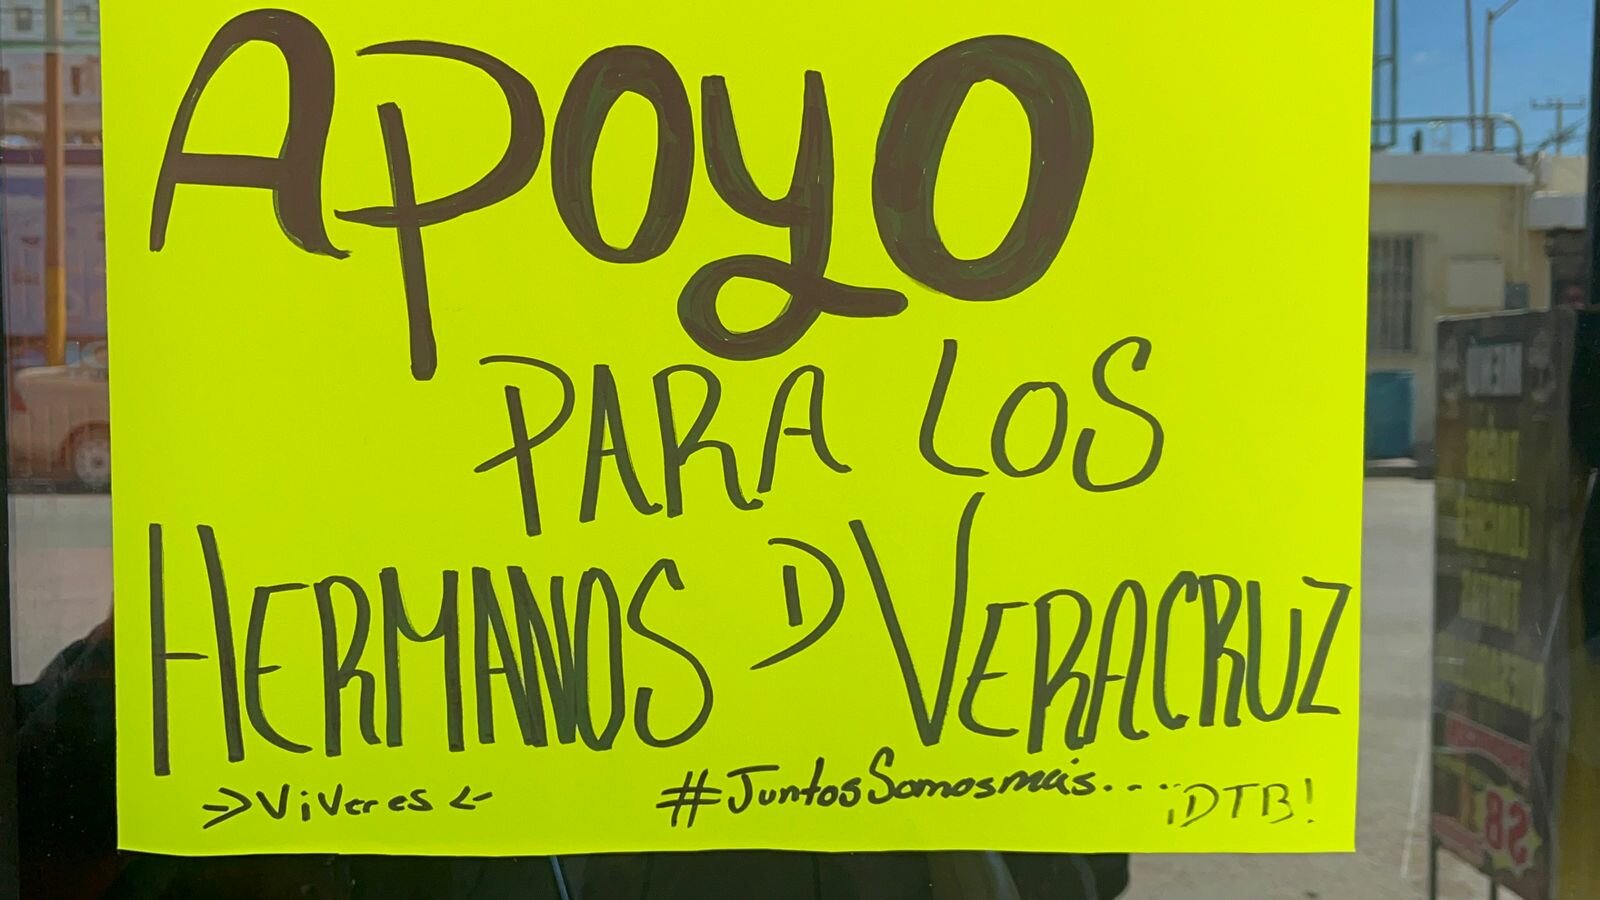 APOYO
PARA LOS
HERMANOS D VERACRUZ
→ViVeres←
#JuntosSomosmás....
¡DTB!